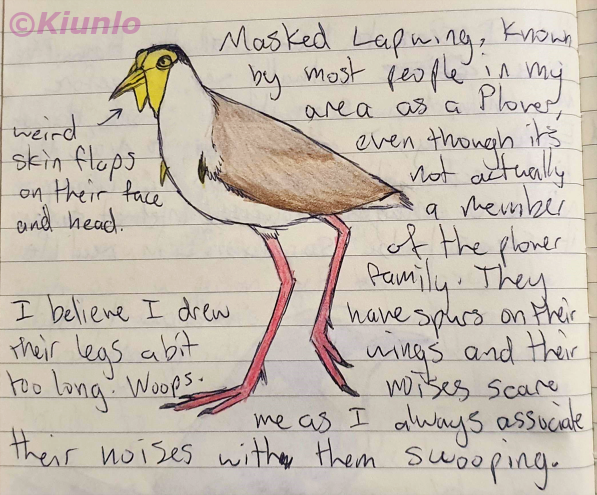 ©Kiunlo
Masked Lapwing, known
by most people in my
area as a Plover,
even though it's
not actually
a member
of the plover
family. They
have spurs on their
wings and their
noises scare
me as I always associate
their noises with them swooping.
weird
skin flaps
on their face
and head.
I believe I drew
their legs a bit
too long. Woops.